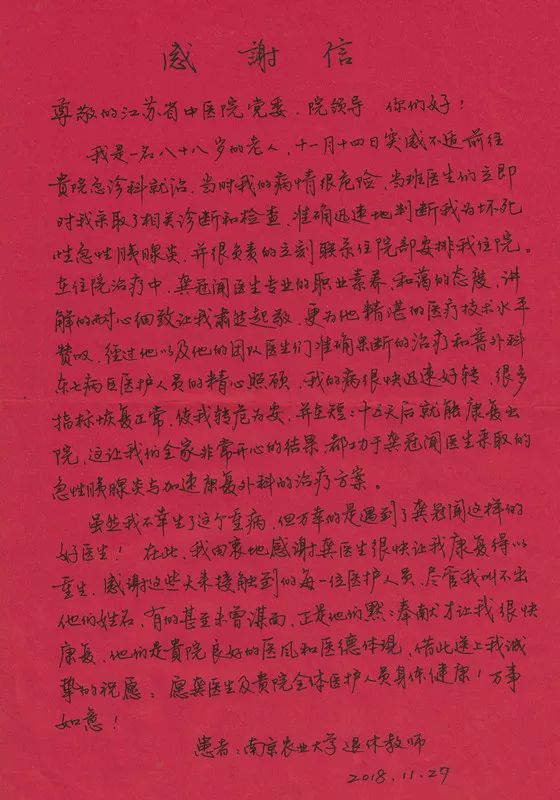 感謝信
尊敬的江苏省中医院党委、院领导 你们好！
我是一名八十八岁的老人，十一月十四日突感不适前往
貴院急诊科就治。当时我的病情很危险，当班医生们立即
对我采取了相关诊断和检查，准确迅速地判断我为坏死
性急性胰腺炎，并很负责的立刻联系住院部安排我住院。
在住院治疗中，龚冠闻医生专业的职业素养，和蔼的态度，讲
解的耐心细致让我肃然起敬，更为他精湛的医疗技术水平
赞叹，经过他以及他的团队医生们准确果断的治疗和普外科
东七病区医护人员的精心照顾，我的病很快迅速好转，很多
指标恢复正常，使我转危为安，并在短短十五天后就能康复出
院，这让我们全家非常开心的结果，都功于龚冠闻医生采取的
急性胰腺炎与加速康复外科的治疗方案。
虽然我不幸生了这个重病，但万幸的是遇到了龚冠闻这样的
好医生！在此，我由衷地感谢龚医生很快让我康复得以
重生，感谢这些天来接触到的每一位医护人员，尽管我叫不出
他们的姓名，有的甚至未曾谋面，正是他们的默默奉献才让我很快
康复，他们是貴院良好的医风和医德体现，借此送上我诚
挚的祝愿：愿龚医生及貴院全体医护人员身体健康！万事
如意！
患者：南京农业大学退休教师
2018.11.27